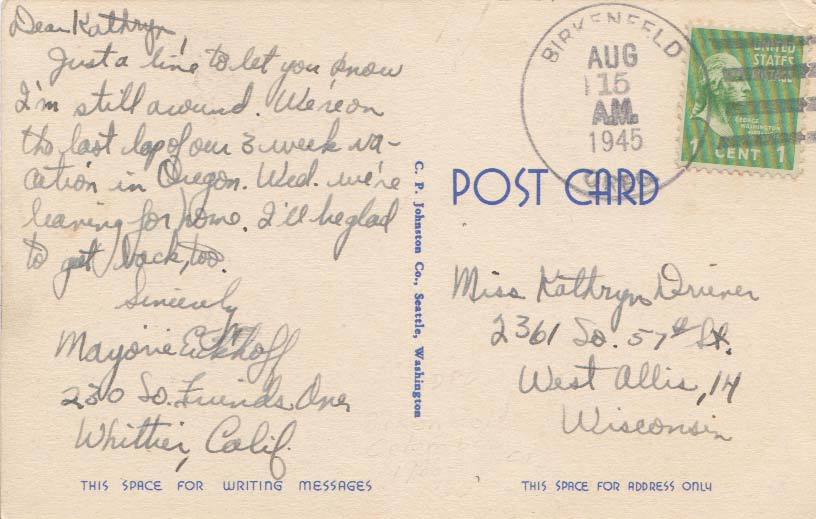 Dear Kathryn,
Just a line to let you know
I'm still around. We're on
the last lap of our 3 week va-
cation in Oregon. Wed. we're
leaving for home. I'll be glad
to get back, too.
Sincerely
Marjorie Eickhoff
230 So. Friends Ave
Whittier, Calif.
THIS SPACE FOR WRITING MESSAGES
C. P. Johnston Co., Seattle, Washington
BIRKENFELD
AUG
15
A.M.
1945
UNITED
STATES
POSTAGE
GEORGE
WASHINGTON
1 CENT 1
POST CARD
Miss Kathryn Driver
2361 So. 57th St.
West Allis, 14
Wisconsin
THIS SPACE FOR ADDRESS ONLY